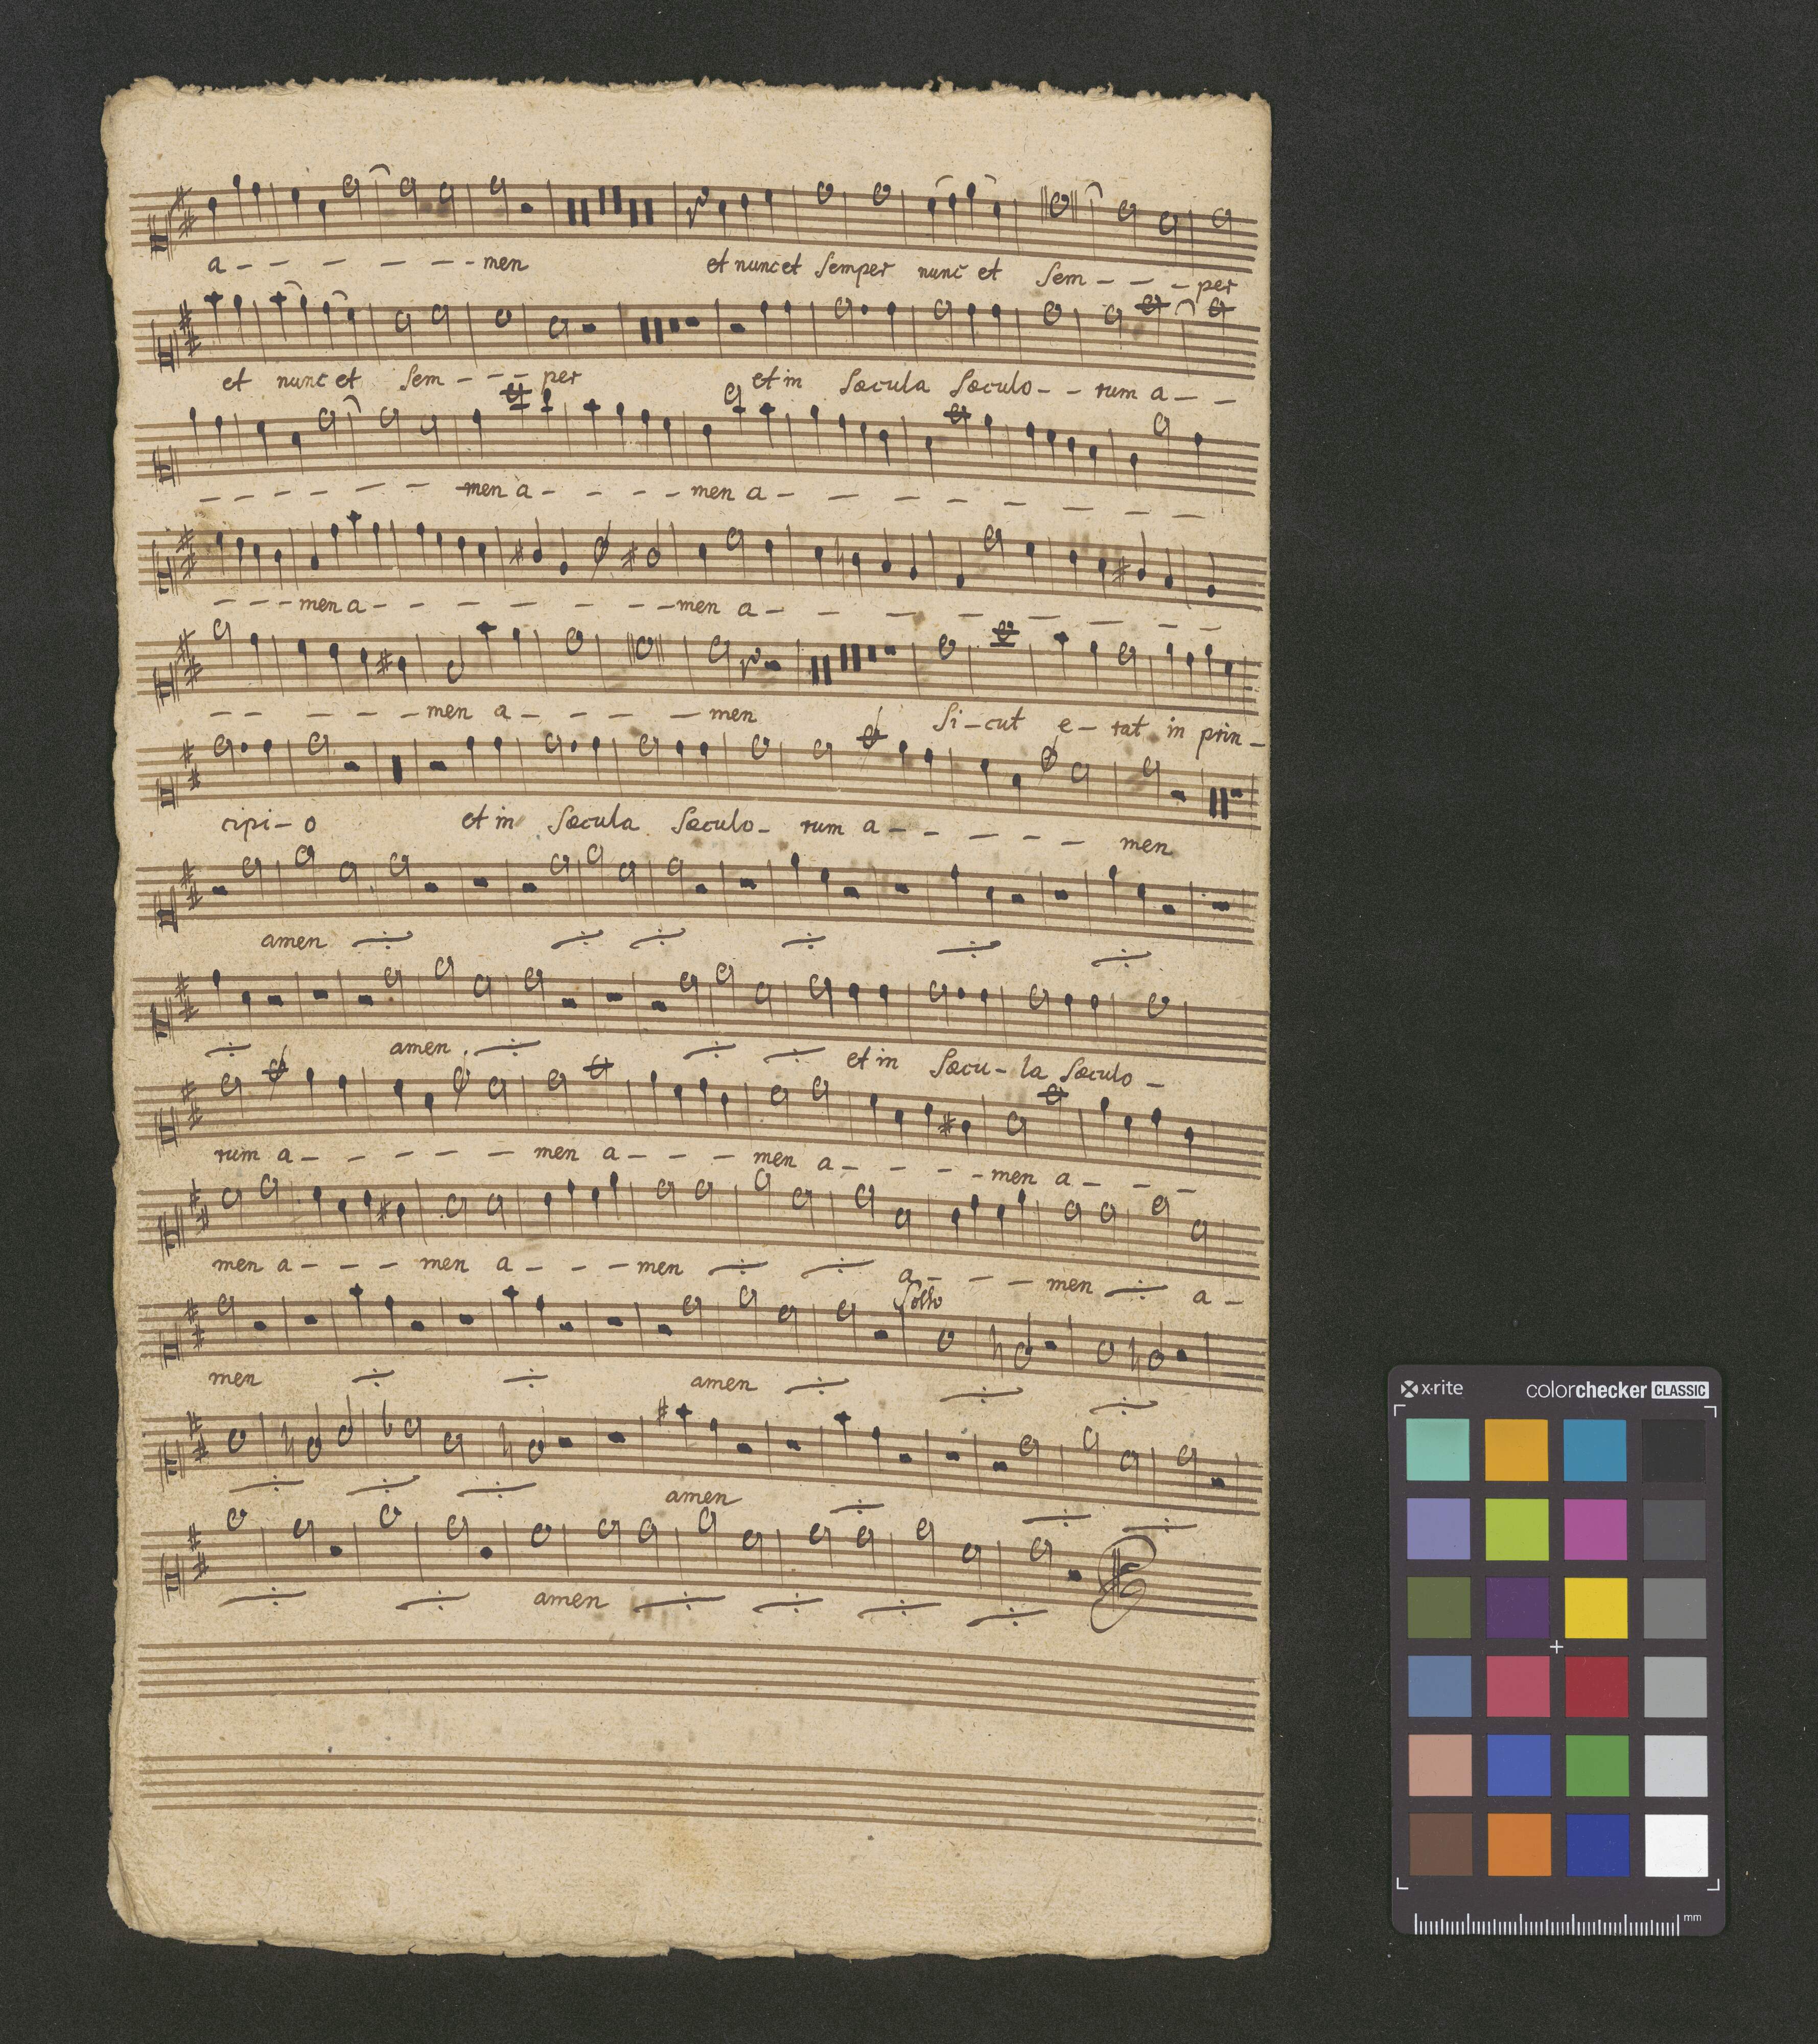 a - - - - - - men et nunc et semper nunc et sem - - - per
et nunc et sem - - - per et in sæcula sæculo - - rum a - -
- - - - - - men a - - - - men a - - - - - - -
- - - men a - - - - - - men a - - - - - - -
- - - - - men a - - - - men si - cut e - rat in prin -
cipi - o et in sæcula sæculo - rum a - - - - - men
amen
amen et in sæcu - la sæculo -
rum a - - - - - men a - - - men a - - - - men a - - -
men a - - - men a - - - men a - - - men a -
Solto
men amen
amen
amen
x·rite colorchecker CLASSIC
mm